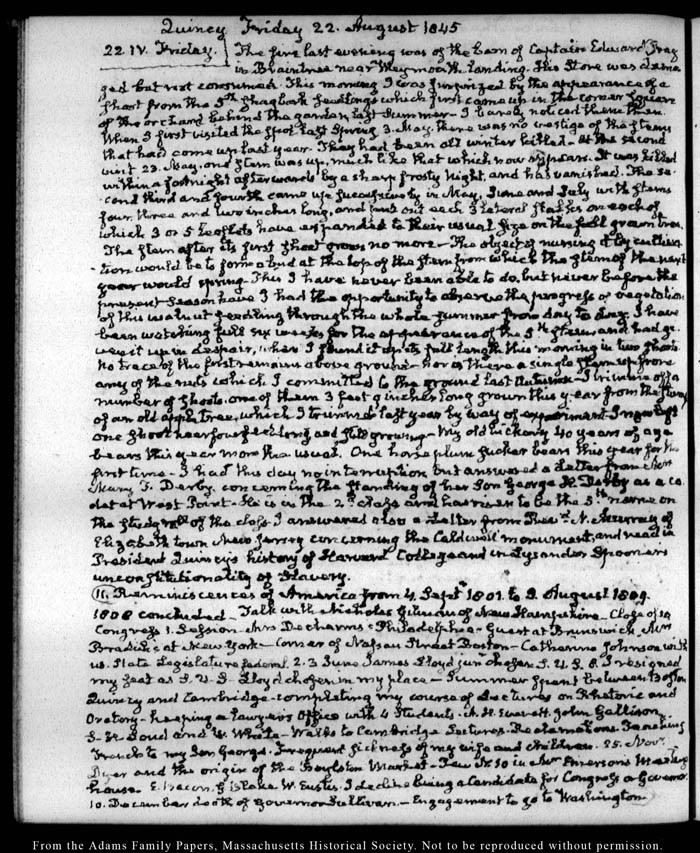 Quincy Friday 22. August 1845
22. IV. Friday. The fire last evening was of the barn of Captain Edward
in Braintree near Weymouth Landing. His Store was dama-
ged but not consumed. This morning I was surprized by the appearance of a
shoot from the 5th Shagbark seedlings which first came up in the corner square
of the orchard behind the garden last Summer - I barely noticed them then.
When I first visited the spot last Spring 3. May, there was no vestige of the stems
that had come up last year. They had been all winter killed - At the second
visit 23. May, one stem was up, much like that which now appears. It was killed
within a fortnight afterwards by a sharp frosty night, and has vanished. The se-
cond third and fourth came up successively in May, June and July with stems
four, three and two inches long, and put out each 3 lateral stalks on each of
which 3 or 5 leaflets have expanded to their usual size on the full grown tree.
The stem after its first shoot grows no more - The object of nursing it by cultiva-
tion would be to form a bud at the top of the stem from which the stem of the next
year would spring. This I have never been able to do, but never before the
present season have I had the opportunity to observe the progress of vegetation
of this walnut seedling through the whole summer from day to day. I have
been watching full six weeks for the appearance of the 5th stem, and had gi-
ven it up in despair, when I found it at its full length this morning in two shoots
No trace of the first remains above ground - nor is there a single stem up from
any of the nuts which I committed to the ground last Autumn - I trimmed off a
number of shoots, one of them 3 feet 9 inches long grown this year from the stump
of an old apple tree, which I trimmed last year by way of experiment. I now left
one shoot near four feet long and still growing - My old hickory 40 years of age
bears this year more than usual. One horse plum sucker bears this year for the
first time - I had this day no interruption but answered a Letter from Mrs
Mary T. Derby, concerning the standing of her Son George H. Derby as a ca-
det at West Point - He is in the 2d class and has risen to be the 5th name on
the roll of the class. I answered also a Letter from Revd N. Murray of
Elizabeth town New Jersey concerning the Caldwell monument, and read in
President Quincy's history of Harvard College and in Lysander Spooner's
unconstitutionality of Slavery.
11. Reminiscences of America from 4. Septr 1801. to 5. August 1809.
1808 concluded - Talk with Nicholas Gilman of New Hampshire - Close of 10
Congress 1. Session - Mrs Decharms - Philadelphia - Guest at Brunswick Mrs
Bradish's at New York - Corner of Nassau Street Boston - Catherine Johnson with
us. State Legislature federal. 2. 3 June James Lloyd jun chosen S. U. S. 8. I resigned
my seat as S. U. S - Lloyd chosen in my place - Summer spent between Boston
Quincy and Cambridge - completing my course of Lectures on Rhetoric and
Oratory - keeping a lawyer's Office with 4 Students - A. H. Everett, John Gallison,
and W. White - Walks to Cambridge Lectures. Declamations. Teaching
French to my Son George. Frequent sickness of my wife and children. 25. Novr.
and the origin of the Boylston Market - in Mr Emerson's Meeting
house. W. Eustis. I decline being a Candidate for Congress or Governor
10. December death of Governor Sullivan - Engagement to go to Washington
From the Adams Family Papers, Massachusetts Historical Society. Not to be reproduced without permission.